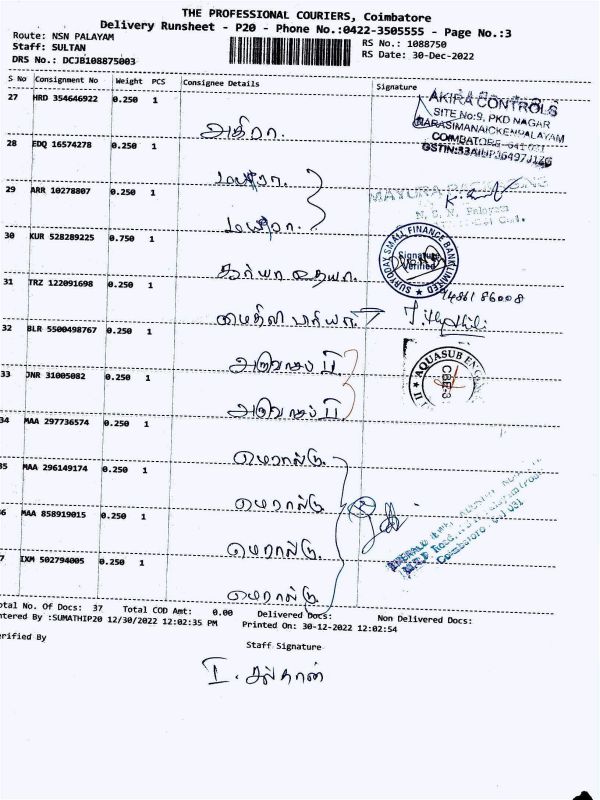 THE PROFESSIONAL COURIERS, Coimbatore
Delivery Runsheet - P20 - Phone No.:0422-3505555 - Page No.:3
Route: NSN PALAYAM
RS No.: 1088750
Staff: SULTAN
RS Date: 30-Dec-2022
DRS No.: DCJB108875003
S No Consignment No Weight PCS Consignee Details Signature
27 HRD 354646922 0.250 1
அதிரா.
AKIRA CONTROLS
SITE No:9, PKD NAGAR
NARASIMANAICKENPALAYAM
COIMBATORE - 641 031
28 EDQ 16574278 0.250 1
மயூரா.
29 ARR 10278807 0.250 1
மயூரா.
MAYURA
N. S. N. Palayam
30 KUR 528289225 0.750 1
சூர்யா தயா.
SURYODAY SMALL FINANCE BANK LIMITED
Signature
Verified
31 TRZ 122091698 0.250 1
94861 86008
மைதிலி
32 BLR 5500498767 0.250 1
II
33 JNR 31005082 0.250 1
II
AQUASUB
CBE-3
34 MAA 297736574 0.250 1
எமரால்டு.
35 MAA 296149174 0.250 1
எமரால்டு.
36 MAA 858919015 0.250 1
எமரால்டு.
37 IXM 502794005 0.250 1
எமரால்டு.
EMERALD
Coimbatore - 641 031
otal No. Of Docs: 37 Total COD Amt: 0.00 Delivered Docs: Non Delivered Docs:
ntered By :SUMATHIP20 12/30/2022 12:02:35 PM Printed On: 30-12-2022 12:02:54
erified By
Staff Signature
I. சுல்தான்